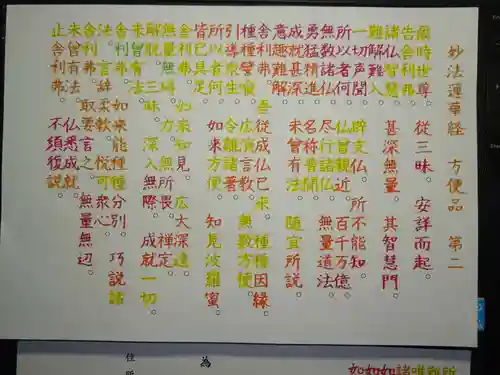 妙法蓮華経 方便品 第二
爾時世尊 從三昧 安詳而起。
告舎利弗
諸仏智慧 甚深無量 其智慧門。
難解難入
一切声聞 辟支仏 所不能知。
所以者何 仏曽親近 百千万億
無数諸仏 尽行諸仏 無量道法。
勇猛精進 名称普聞
成就甚深 未曽有法 隨宜所説
意趣難解
舎利弗 吾從成仏已来 種種因縁
種種譬喩 広演言教 無数方便
引導衆生 令離諸著
所以者何 如来方便 知見波羅蜜
皆已具足
舎利弗 如来知見 広大深遠
無量無礙 力無所畏 禅定
解脱三昧 深入無際 成就一切
未曽有法
舎利弗 如来能種種分別 巧説諸
法 言辞柔軟 悦可衆心。
舎利弗 取要言之 無量無辺。
未曽有法 仏悉成就
止舎利弗 不須復説
所難唯諸如如如
為
住所